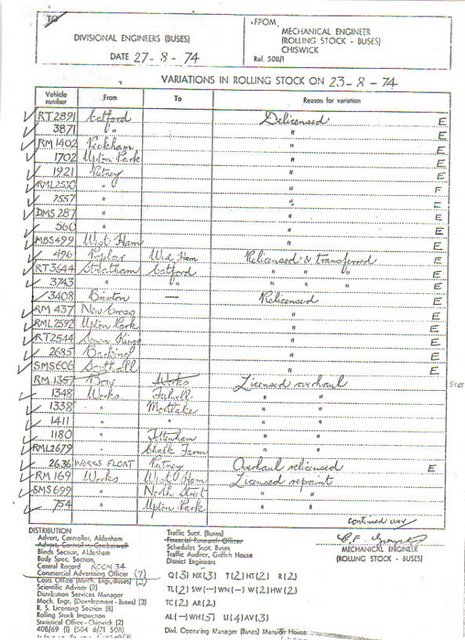 TO
DIVISIONAL ENGINEERS (BUSES)
DATE 27-8-74
FROM,
MECHANICAL ENGINEER
(ROLLING STOCK - BUSES)
CHISWICK
Ref. 508/1
VARIATIONS IN ROLLING STOCK ON 23-8-74
Vehicle number From To Reason for variation
RT2891 Catford Delicensed E
3871 " " E
RM1402 Peckham " E
1702 Upton Park " E
1921 Putney " E
RML2530 " " F
2557 " " E
DMS287 " " E
560 " " E
MBS499 West Ham " E
496 Poplar West Ham Relicensed & transferred E
RT3644 Streatham Catford " " " E
3743 " " " " " E
3408 Brixton — Relicensed E
RM437 New Cross " E
RML2592 Upton Park " E
RT2544 " E
2695 Barking " E
SMS606 Southall " E
RM1357 Works Licensed overhaul
1348 Works Fulwell "
1338 " Mortlake "
1411 " " "
1180 " Tottenham "
RML2679 " Chalk Farm "
2636 WORKS FLOAT Putney Overhaul relicensed E
RM169 Works West Ham Licensed repaint
SMS699 " North Street " "
754 " Upton Park " "
continued over
MECHANICAL ENGINEER
(ROLLING STOCK - BUSES)
DISTRIBUTION
Advert. Controller, Aldenham
Advert. Controller, Camberwell
Blinds Section, Aldenham
Body Spec. Section,
Central Record ROOM 34
Commercial Advertising Officer (7)
Costs Office (Mech. Eng.-Buses) (2)
Scientific Adviser (2)
Distribution Services Manager
Mech. Engr. (Development - Buses) (2)
R. S. Licensing Section (8)
Rolling Stock Inspection
Statistical Office - Chiswick (2)
408/69 (1) (504 6/71 508)
Traffic Supt. (Buses)
Financial Research Officer
Schedules Supt. Buses
Traffic Auditor, Griffith House
District Engineers
Q(3) HX(3) T(2) HT(2) R(2)
TL(2) SW(-) WN(-) W(2) HW(2)
TC(2) AR(2)
AL(-) WH(5) U(4) AV(3)
Divl. Operating Manager (Buses) Mansion House